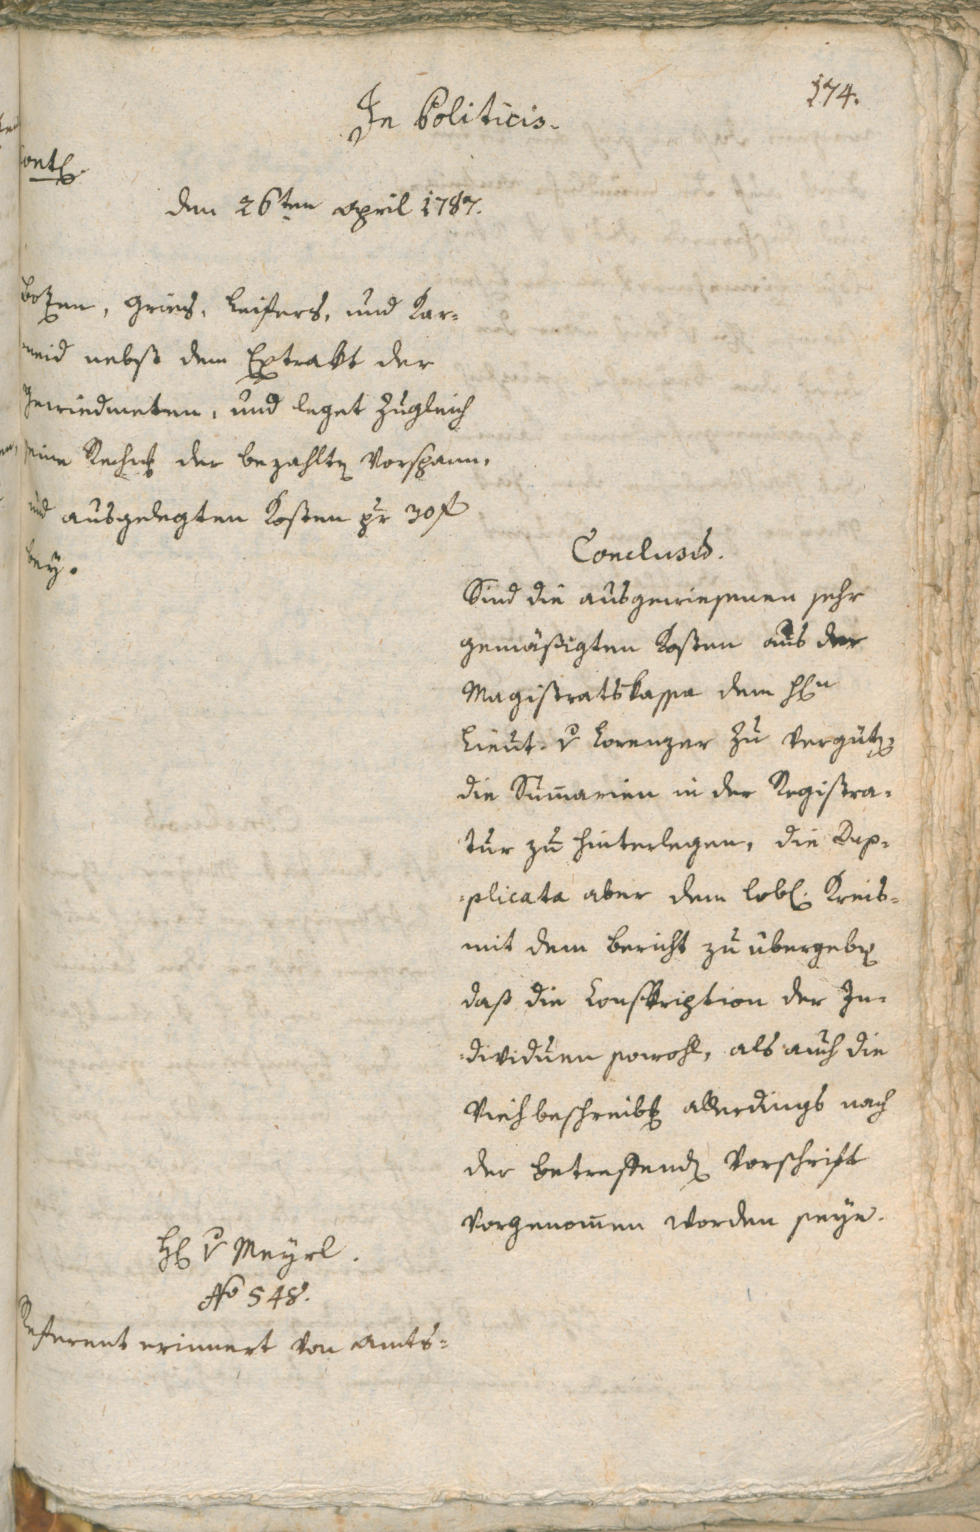 174.
In Politicis.
Cont.
den 26ten April 1787.
Botzen, Gries, Leifers, und Kar-
neid nebst dem Extrakt der
gewiedmeten, und leget zugleich
seine Rechng der bezahlten Vorspann,
und ausgelegten Kosten pr 30 f
bey.
Conclusum.
Sind die ausgewiesenen sehr
gemäßigten Kosten aus der
Magistratskassa dem Hn
Lieut. v Lorenzer zu vergüten,
die Sum̄arien in der Registra-
tur zu hinterlegen, die Dup-
plicata aber dem lobl. Kreis-
mit dem Bericht zu übergeben
daß die Conskription der In-
dividuen sowohl, als auch die
Viehbeschreibg allerdings nach
der betreffenden Vorschrift
vorgenom̄en worden seye.
H v Meyrl.
No 548.
Referent erinnert von Amts-